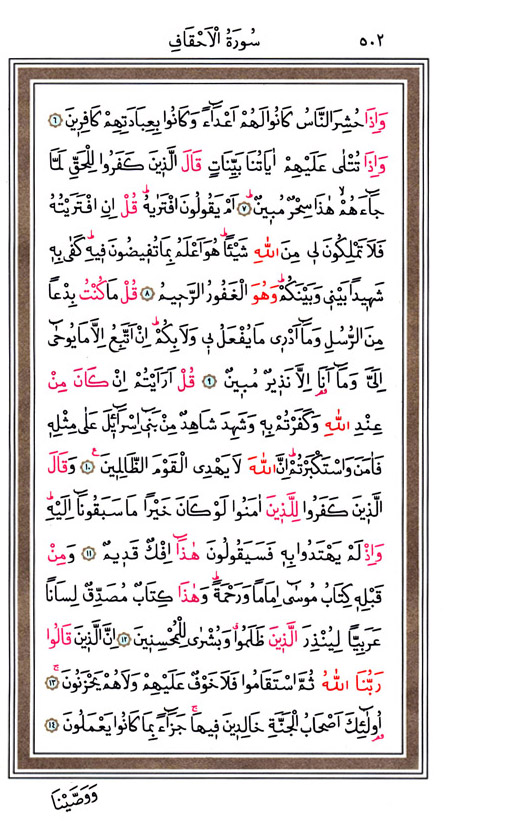 ٥٠٢ سُورَةُ الْاَحْقَافِ
وَاِذَا حُشِرَ النَّاسُ كَانُوا لَهُمْ اَعْدَٓاءً وَكَانُوا بِعِبَادَتِهِمْ كَافِر۪ينَ ٦
وَاِذَا تُتْلٰى عَلَيْهِمْ اٰيَاتُنَا بَيِّنَاتٍ قَالَ الَّذ۪ينَ كَفَرُوا لِلْحَقِّ لَمَّا
جَٓاءَهُمْۙ هٰذَا سِحْرٌ مُب۪ينٌۜ ٧ اَمْ يَقُولُونَ افْتَرٰيهُۜ قُلْ اِنِ افْتَرَيْتُهُ
فَلَا تَمْلِكُونَ ل۪ي مِنَ اللّٰهِ شَيْـًٔاۜ هُوَ اَعْلَمُ بِمَا تُف۪يضُونَ ف۪يهِۜ كَفٰى بِه۪
شَه۪يدًا بَيْن۪ي وَبَيْنَكُمْۜ وَهُوَ الْغَفُورُ الرَّح۪يمُ ٨ قُلْ مَا كُنْتُ بِدْعًا
مِنَ الرُّسُلِ وَمَٓا اَدْر۪ي مَا يُفْعَلُ ب۪ي وَلَا بِكُمْۜ اِنْ اَتَّبِعُ اِلَّا مَا يُوحٰٓى
اِلَيَّ وَمَٓا اَنَا۬ اِلَّا نَذ۪يرٌ مُب۪ينٌ ٩ قُلْ اَرَاَيْتُمْ اِنْ كَانَ مِنْ
عِنْدِ اللّٰهِ وَكَفَرْتُمْ بِه۪ وَشَهِدَ شَاهِدٌ مِنْ بَن۪ٓي اِسْرَٓائ۪لَ عَلٰى مِثْلِه۪
فَاٰمَنَ وَاسْتَكْبَرْتُمْۜ اِنَّ اللّٰهَ لَا يَهْدِي الْقَوْمَ الظَّالِم۪ينَ۟ ١٠ وَقَالَ
الَّذ۪ينَ كَفَرُوا لِلَّذ۪ينَ اٰمَنُوا لَوْ كَانَ خَيْرًا مَا سَبَقُونَٓا اِلَيْهِۜ
وَاِذْ لَمْ يَهْتَدُوا بِه۪ فَسَيَقُولُونَ هٰذَٓا اِفْكٌ قَد۪يمٌ ١١ وَمِنْ
قَبْلِه۪ كِتَابُ مُوسٰٓى اِمَامًا وَرَحْمَةًۜ وَهٰذَا كِتَابٌ مُصَدِّقٌ لِسَانًا
عَرَبِيًّا لِيُنْذِرَ الَّذ۪ينَ ظَلَمُواۗ وَبُشْرٰى لِلْمُحْسِن۪ينَ ١٢ اِنَّ الَّذ۪ينَ قَالُوا
رَبُّنَا اللّٰهُ ثُمَّ اسْتَقَامُوا فَلَا خَوْفٌ عَلَيْهِمْ وَلَا هُمْ يَحْزَنُونَۚ ١٣
اُو۬لٰٓئِكَ اَصْحَابُ الْجَنَّةِ خَالِد۪ينَ ف۪يهَاۚ جَزَٓاءً بِمَا كَانُوا يَعْمَلُونَ ١٤
وَوَصَّيْنَا